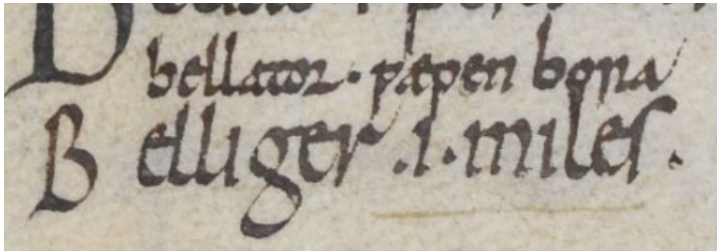 bellator · ƿæpen bora
Belliger .i. miles.